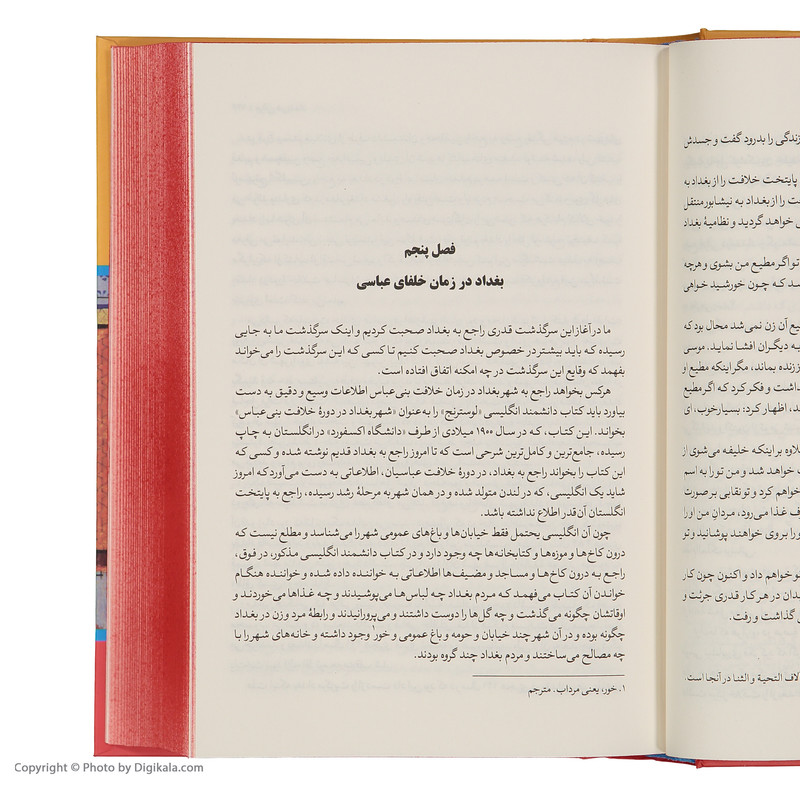 زندگی را بدرود گفت و جسدش
پایتخت خلافت را از بغداد به
ت را از بغداد به نیشابور منتقل
ی خواهد گردید و نظامیهٔ بغداد
تو اگر مطیع من بشوی و هرچه
سد که چون خورشید خواهی
یع آن زن نمی‌شد محال بود که
به دیگران افشا نماید. موسی
ز زنده بماند، مگر اینکه مطیع او
داشت و فکر کرد که اگر مطیع
د، اظهار کرد: بسیار خوب، ای
لاوه بر اینکه خلیفه می‌شوی از
ت خواهد شد و من تو را به اسم
خواهم کرد و تو نقابی بر صورت
ف غذا می‌رود، مردان من او را
و را بر روی خواهند پوشانید و تو
و خواهم داد و اکنون چون کار
دان در هر کار قدری جرئت و
ی گذاشت و رفت.
لاف التحیة و الثنا در آنجا است.
فصل پنجم
بغداد در زمان خلفای عباسی
ما در آغاز این سرگذشت قدری راجع به بغداد صحبت کردیم و اینک سرگذشت ما به جایی
رسیده که باید بیشتر در خصوص بغداد صحبت کنیم تا کسی که این سرگذشت را می‌خواند
بفهمد که وقایع این سرگذشت در چه امکنه اتفاق افتاده است.
هرکس بخواهد راجع به شهر بغداد در زمان خلافت بنی‌عباس اطلاعات وسیع و دقیق به دست
بیاورد باید کتاب دانشمند انگلیسی «لوسترنج» را به‌عنوان «شهر بغداد در دورهٔ خلافت بنی‌عباس»
بخواند. این کتاب، که در سال ۱۹۰۰ میلادی از طرف «دانشگاه اکسفورد» در انگلستان به چاپ
رسیده، جامع‌ترین و کامل‌ترین شرحی است که تا امروز راجع به بغداد قدیم نوشته شده و کسی که
این کتاب را بخواند راجع به بغداد، در دورهٔ خلافت عباسیان، اطلاعاتی به دست می‌آورد که امروز
شاید یک انگلیسی، که در لندن متولد شده و در همان شهر به مرحلهٔ رشد رسیده، راجع به پایتخت
انگلستان آن‌قدر اطلاع نداشته باشد.
چون آن انگلیسی یحتمل فقط خیابان‌ها و باغ‌های عمومی شهر را می‌شناسد و مطلع نیست که
درون کاخ‌ها و موزه‌ها و کتابخانه‌ها چه وجود دارد و در کتاب دانشمند انگلیسی مذکور، در فوق،
راجع به درون کاخ‌ها و مساجد و مضیف‌ها اطلاعاتی به خواننده داده شده و خواننده هنگام
خواندن آن کتاب می‌فهمد که مردم بغداد چه لباس‌ها می‌پوشیدند و چه غذاها می‌خوردند و
اوقاتشان چگونه می‌گذشت و چه گل‌ها را دوست داشتند و می‌پرورانیدند و رابطهٔ مرد و زن در بغداد
چگونه بوده و در آن شهر چند خیابان و حومه و باغ عمومی و خور۱ وجود داشته و خانه‌های شهر را با
چه مصالح می‌ساختند و مردم بغداد چند گروه بودند.
۱. خور، یعنی مرداب. مترجم
Copyright © Photo by Digikala.com